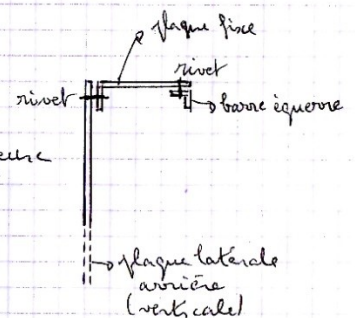 plaque fixe
rivet
rivet
barre équerre
plaque latérale
arrière
(verticale)